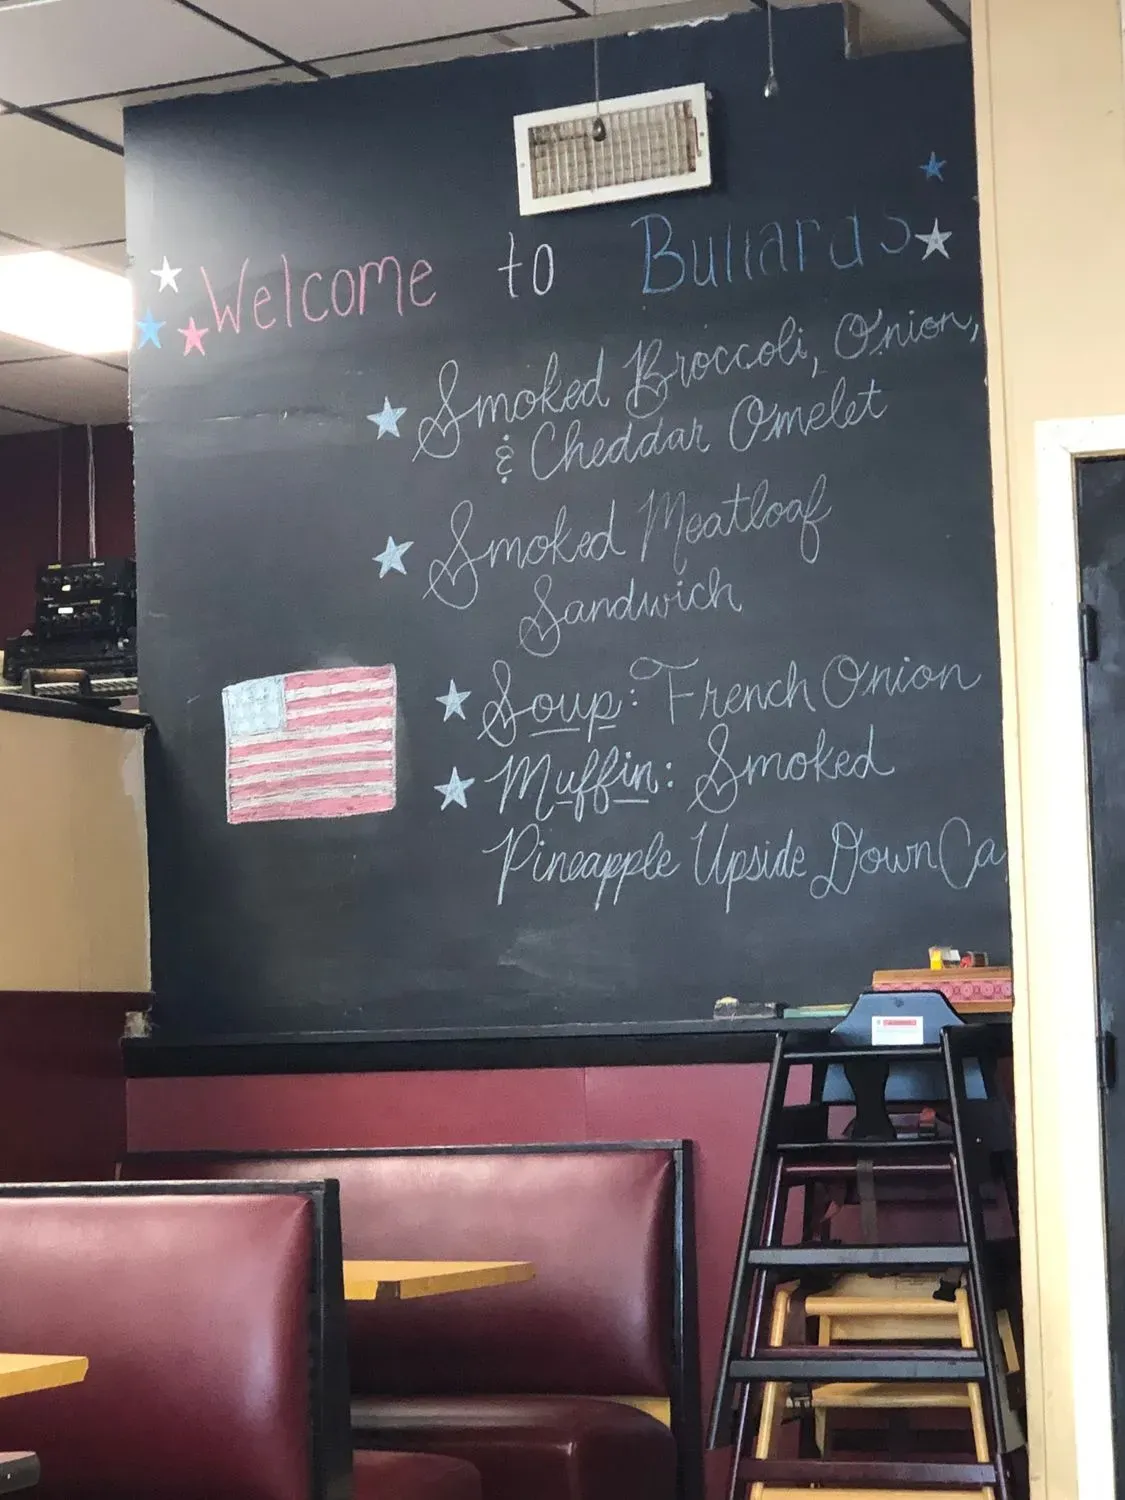 Welcome to Bullards
Smoked Broccoli, Onion,
& Cheddar Omelet
Smoked Meatloaf
Sandwich
Soup: French Onion
Muffin: Smoked
Pineapple Upside Down Ca